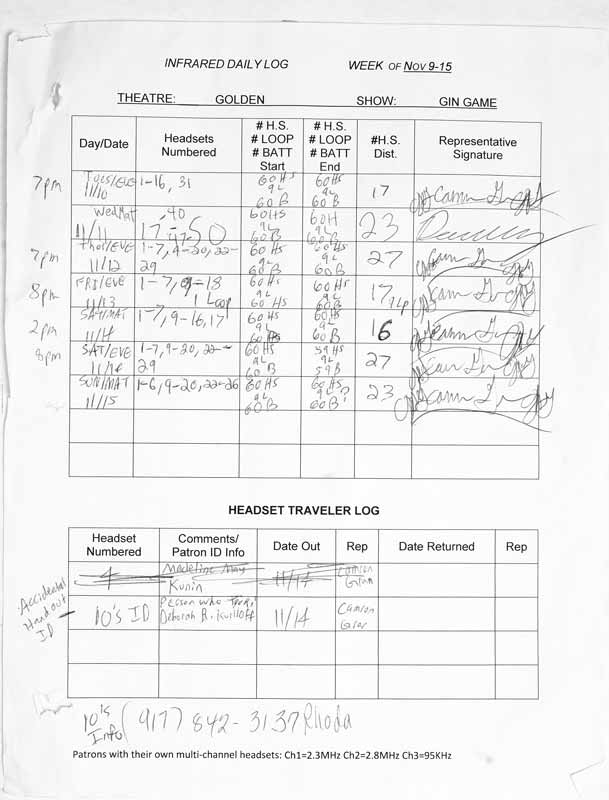 INFRARED DAILY LOG WEEK OF NOV 9-15
THEATRE: GOLDEN SHOW: GIN GAME
Day/Date Headsets Numbered # H.S. # LOOP # BATT Start # H.S. # LOOP # BATT End #H.S. Dist. Representative Signature
7pm TUES/EVE 11/10 1-16, 31 60 HS 9L 60 B 60 HS 9L 60 B 17
Wed Mat 11/11 , 40 17-47-50 60HS 9L 60 B 60H 9L 60 B 23
7pm Thur/EVE 11/12 1-7, 9-20, 22-29 60 HS 9L 60 B 60 HS 9L 60 B 27
8pm FRI/EVE 11/13 1-7, 9-18 1 Loop 60 HS 9L 60 HS 60 HS 9L 60 B 17 1Lp
2pm SAT/MAT 11/14 1-7, 9-16, 17 60 HS 9L 60 60 HS 9L 60 B 16
8pm SAT/EVE 11/14 1-7, 9-20, 22-29 60 HS 9L 60 B 59 HS 9L 59 B 27
SUN/MAT 11/15 1-6, 9-20, 22-26 60 HS 9L 60 B 60 HS 9L 60 B 23
HEADSET TRAVELER LOG
Headset Numbered Comments/ Patron ID Info Date Out Rep Date Returned Rep
4 Madeline May Kunin 11/14 Camron
Accidental Handout ID
10's ID Person who Deborah R. 11/14 Camron
10's Info (917) 842-3137 Rhoda
Patrons with their own multi-channel headsets: Ch1=2.3MHz Ch2=2.8MHz Ch3=95KHz